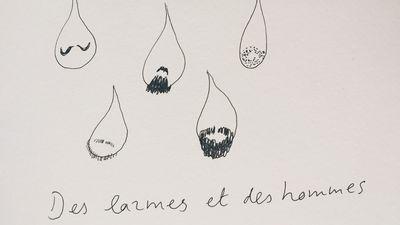 Des larmes et des hommes